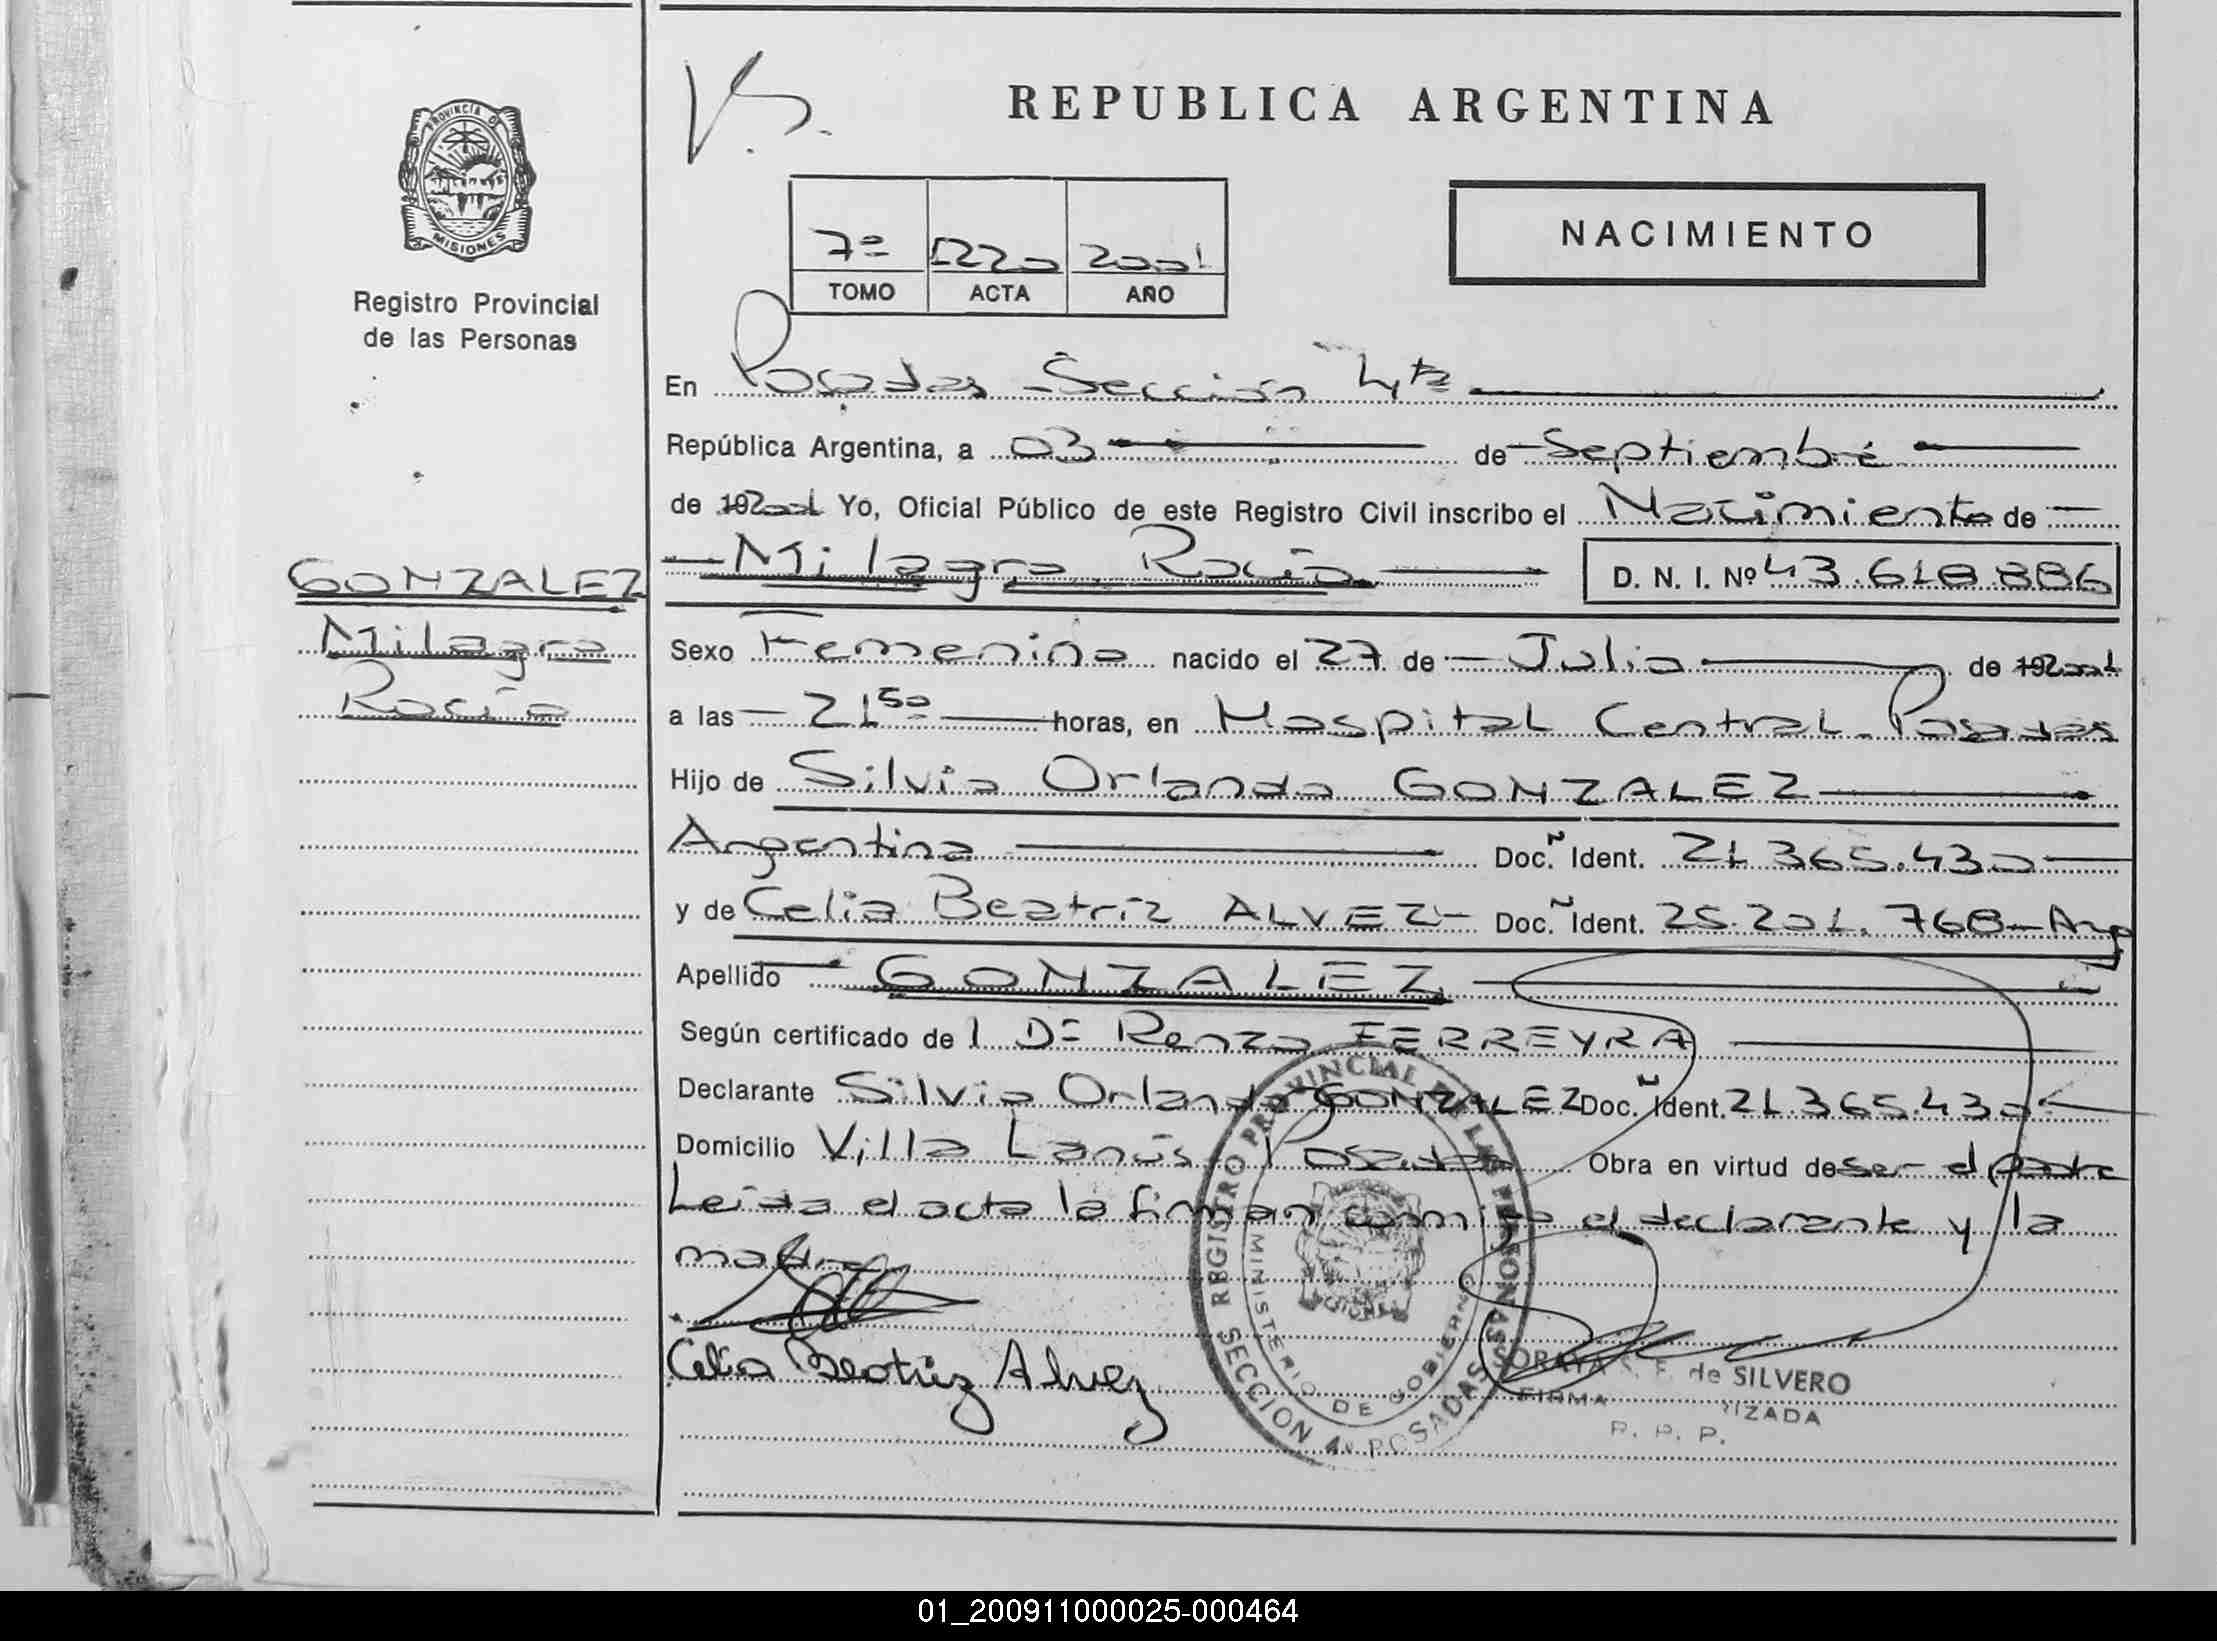 V.S.
REPUBLICA ARGENTINA
PROVINCIA DE
MISIONES
Registro Provincial
de las Personas
7º 1220 2001
TOMO ACTA AÑO
NACIMIENTO
En Posadas - Sección 4ta
República Argentina, a 03 de Septiembre
de 192001 Yo, Oficial Público de este Registro Civil inscribo el Nacimiento de
GONZALEZ
Milagro
Rocío
Milagro Rocío D. N. I. Nº 43.618.886
Sexo Femenino nacido el 27 de Julio de 192001
a las 21 50 horas, en Hospital Central - Posadas
Hijo de Silvio Orlando GONZALEZ
Argentino Doc. Ident. 21.365.430
y de Celia Beatriz ALVEZ - Doc. Ident. 25.201.768 - Arg
Apellido GONZALEZ
Según certificado de l Dr Renzo FERREYRA
Declarante Silvio Orlando GONZALEZ Doc. Ident. 21.365.430
Domicilio Villa Lanús Posadas Obra en virtud de ser el padre
Leída el acta la firman conmigo el declarante y la
madre
Celia Beatriz Alvez
REGISTRO PROVINCIAL DE LAS PERSONAS
MINISTERIO DE GOBIERNO
MISIONES
SECCION 4º POSADAS
SORAYA S. F. de SILVERO
FIRMA
R. P. P.
01_200911000025-000464